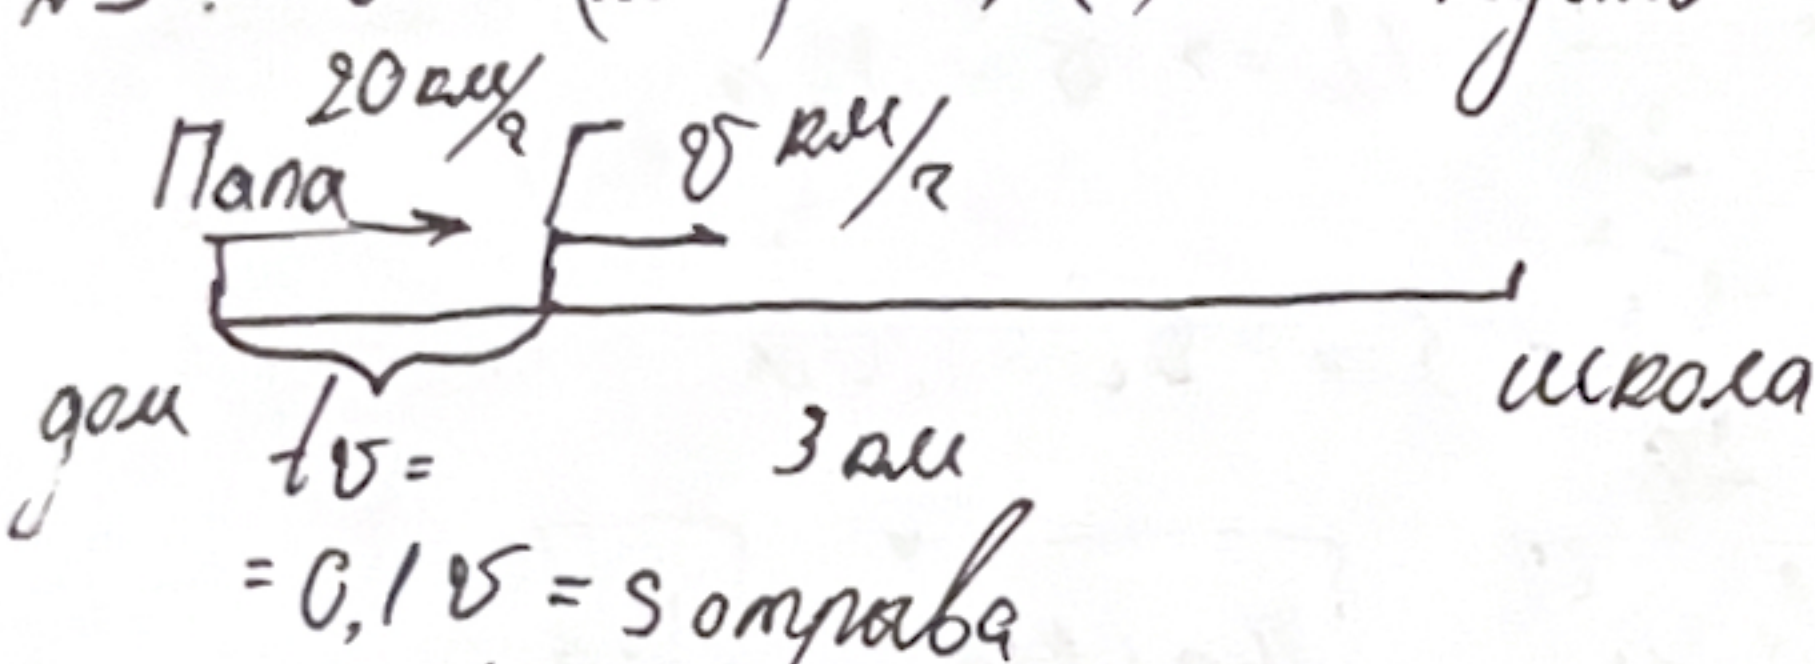 20 км/ч
Папа
v км/ч
дом
школа
tv =
3 км
= 0,1 v = S отрыва